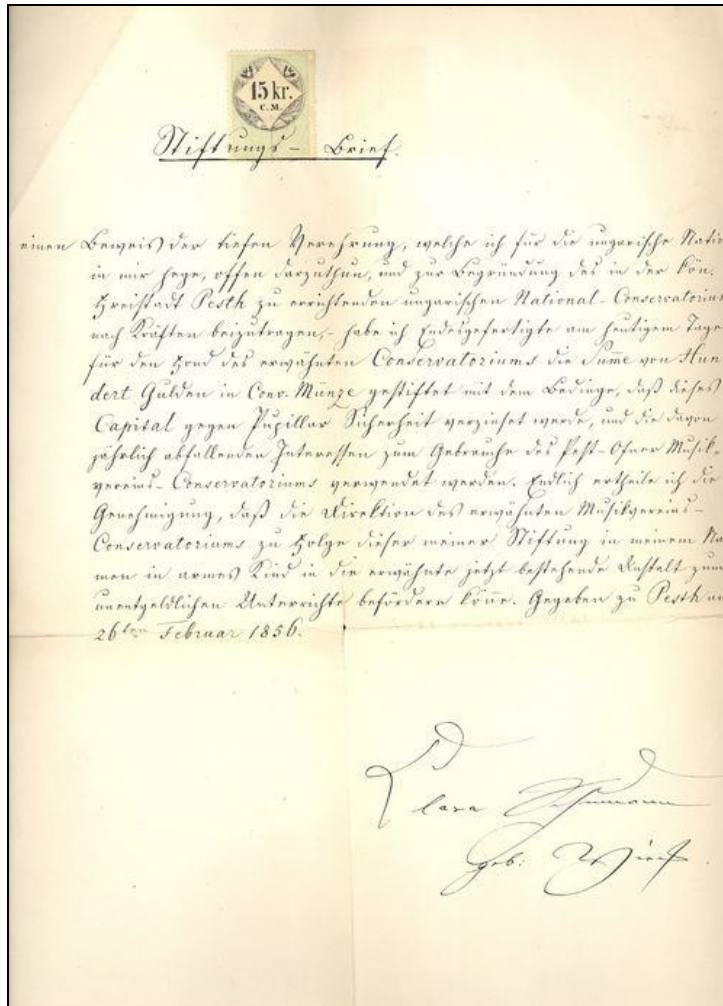 15 kr.
C.M.
Stiftungs-Brief.
einen Beweis der tiefen Verehrung, welche ich für die ungarische Natio
in mir hege, offen darzuthun, und zur Begründung des in der kön.
Freistadt Pesth zu errichtenden ungarischen National-Conservatorium
nach Kräften beizutragen,- habe ich Endesgefertigte am heutigem Tage
für den Fond des erwähnten Conservatoriums die Summe von Hun
dert Gulden in Conv. Münze gestiftet mit dem Bedinge, daß dieses
Capital gegen Pupillar Sicherheit verzinset werde, und die davon
jährlich abfallenden Interessen zum Gebrauche des Pest-Ofner Musik-
vereins-Conservatoriums verwendet werden. Endlich ertheile ich die
Genehmigung, daß die Direktion des erwähnten Musikvereins-
Conservatoriums zu Folge dieser meiner Stiftung in meinem Na
men in armes Kind in die erwähnte jetzt bestehende Anstalt zum
unentgeldlichen Unterrichte befördern könne. Gegeben zu Pesth am
26ten Februar 1856.
Clara Schumann
geb: Wieck.